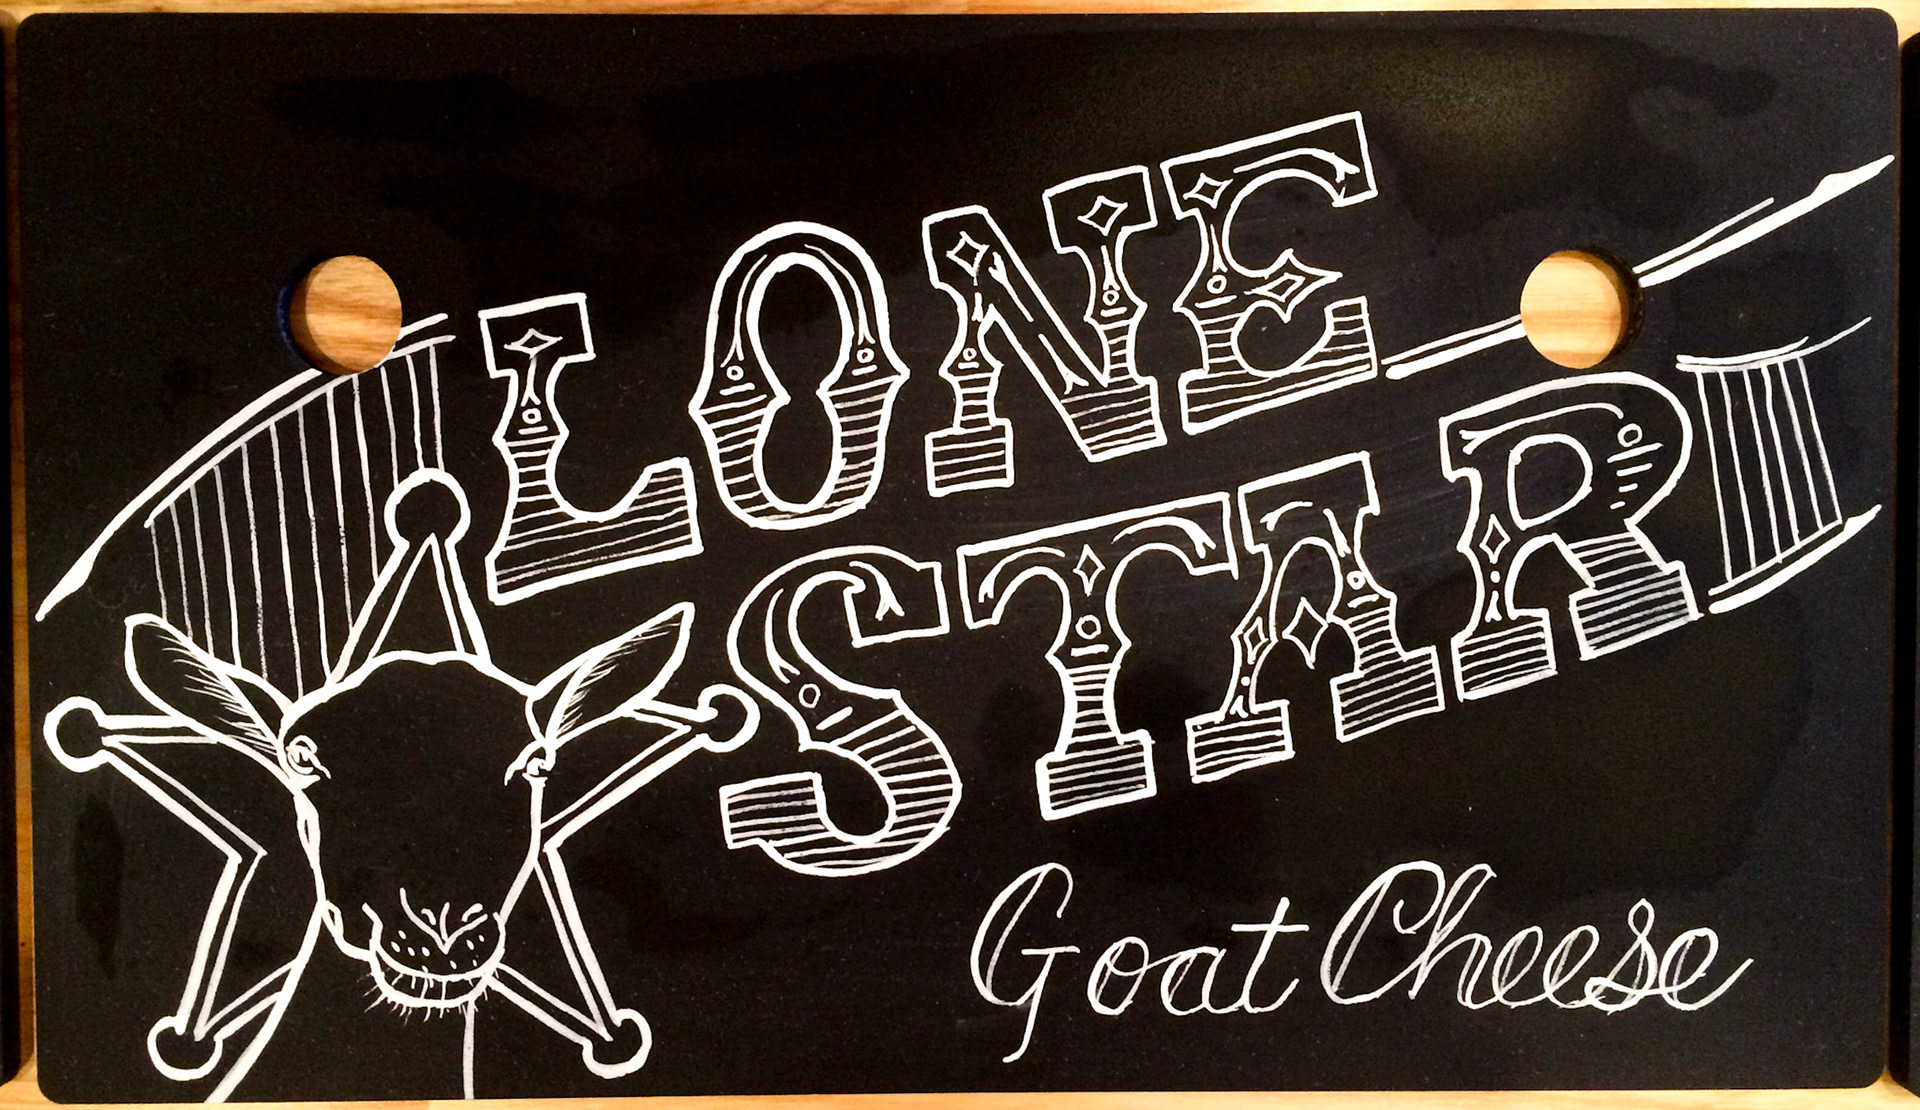 LONE
STAR
Goat Cheese